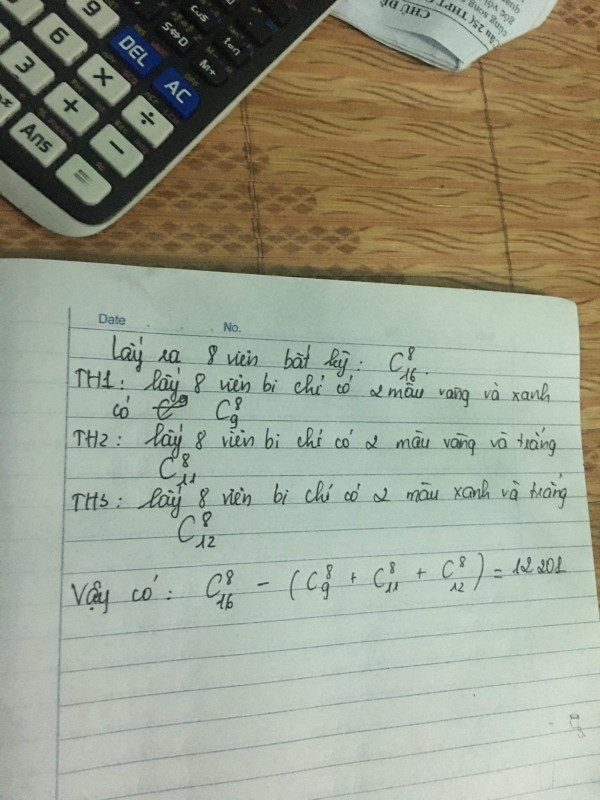 9
cos
tan
6
DEL
S⇔D
M+
3
×
AC
+
÷
Ans
−
=
CHỦ ĐỀ
Date . . . No.
Lấy ra 8 viên bất kỳ: C⁸₁₆.
TH1: lấy 8 viên bi chỉ có 2 màu vàng và xanh
có C⁸₉
TH2: lấy 8 viên bi chỉ có 2 màu vàng và trắng
C⁸₁₁
TH3: lấy 8 viên bi chỉ có 2 màu xanh và trắng
C⁸₁₂
Vậy có: C⁸₁₆ − (C⁸₉ + C⁸₁₁ + C⁸₁₂) = 12201